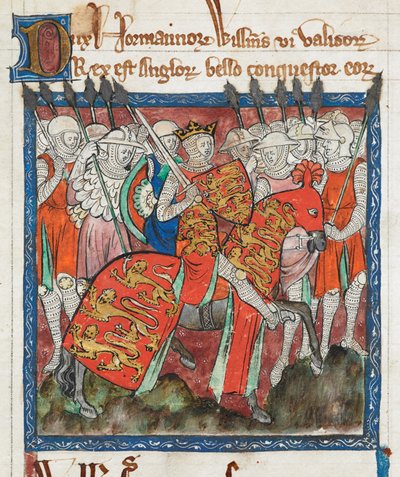 Dux Normannor Willms vi validor
Rex est Anglor bello conquestor eor